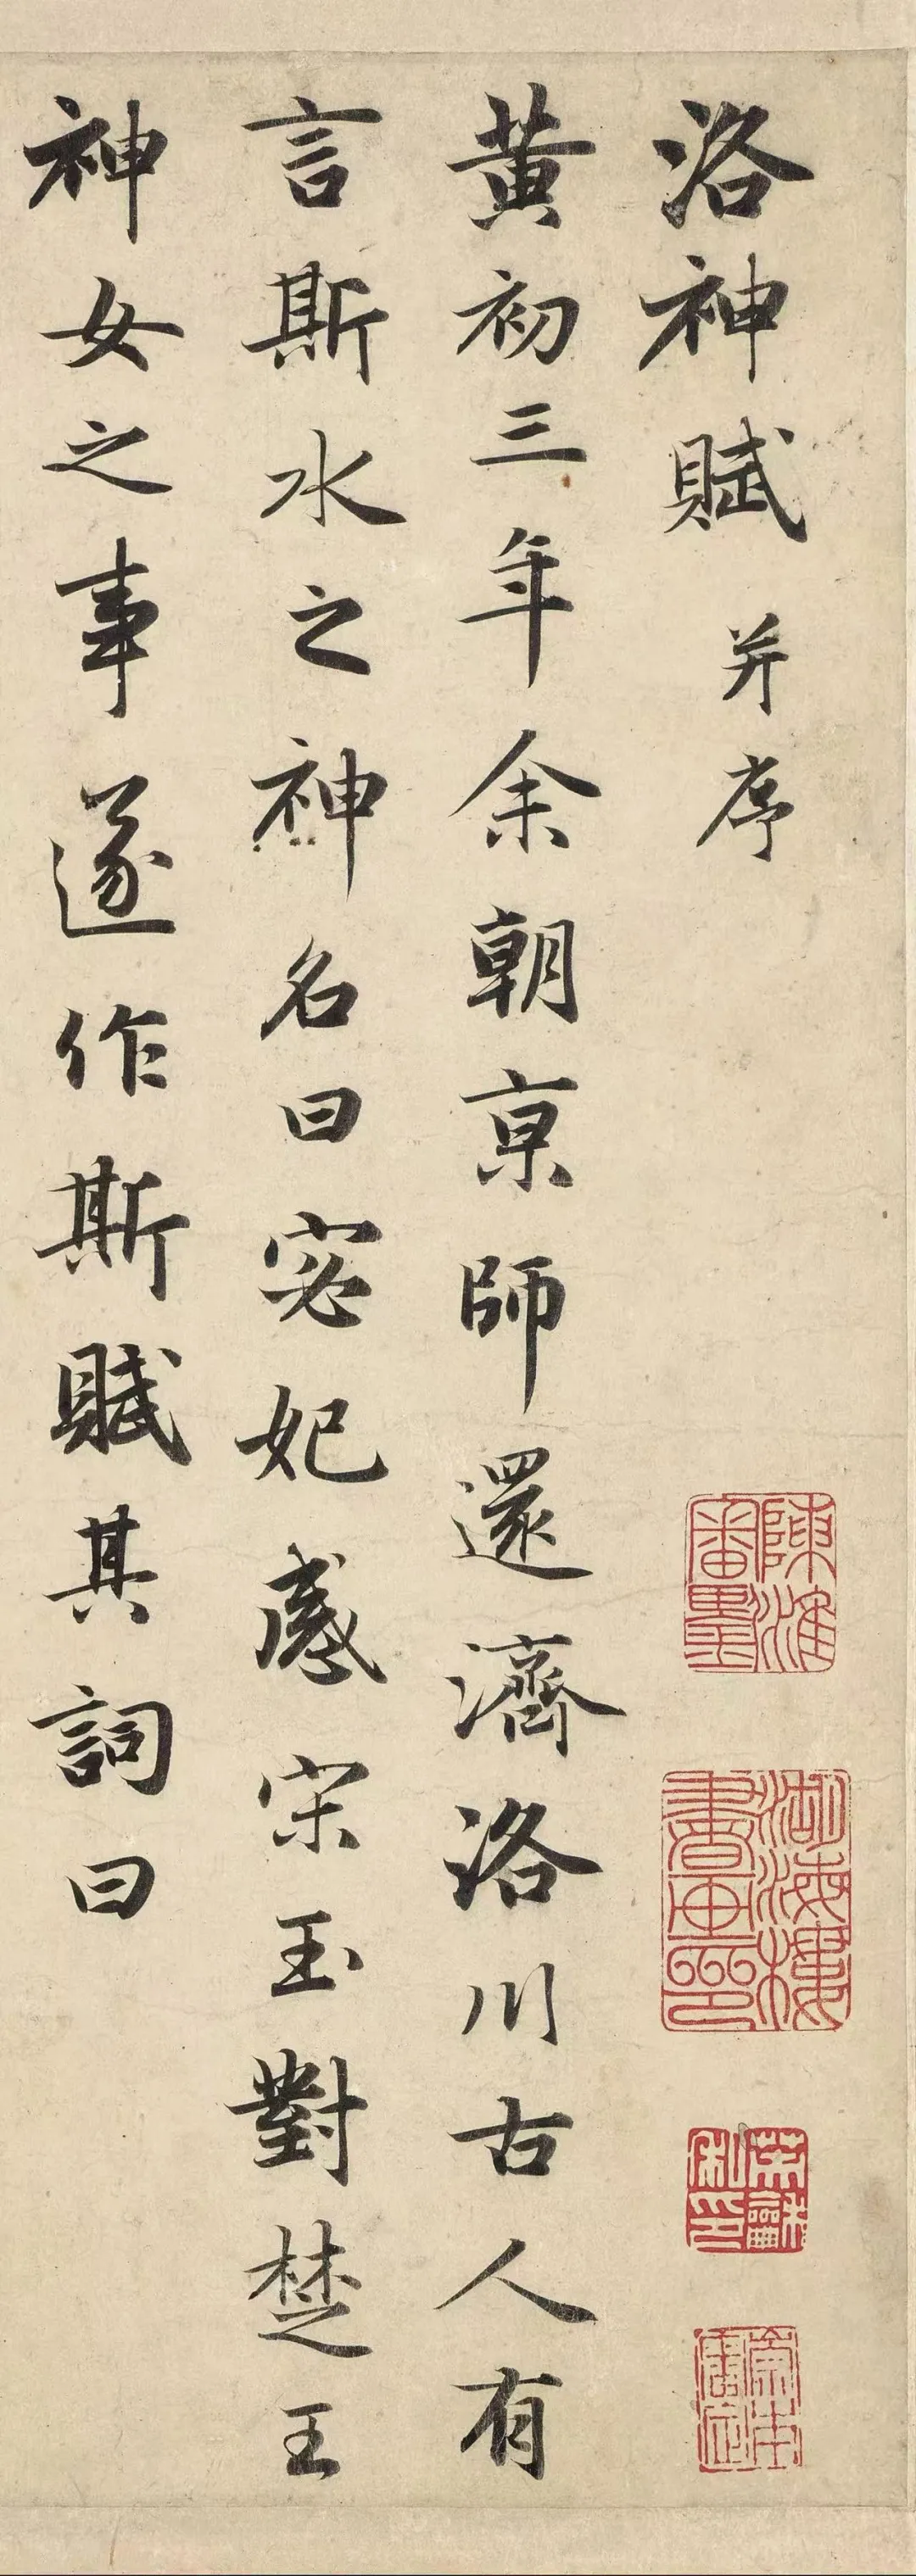 洛神賦 并序
黄初三年余朝京師還濟洛川古人有
言斯水之神名曰宓妃感宋玉對楚王
神女之事遂作斯賦其詞曰
陳淮審墨